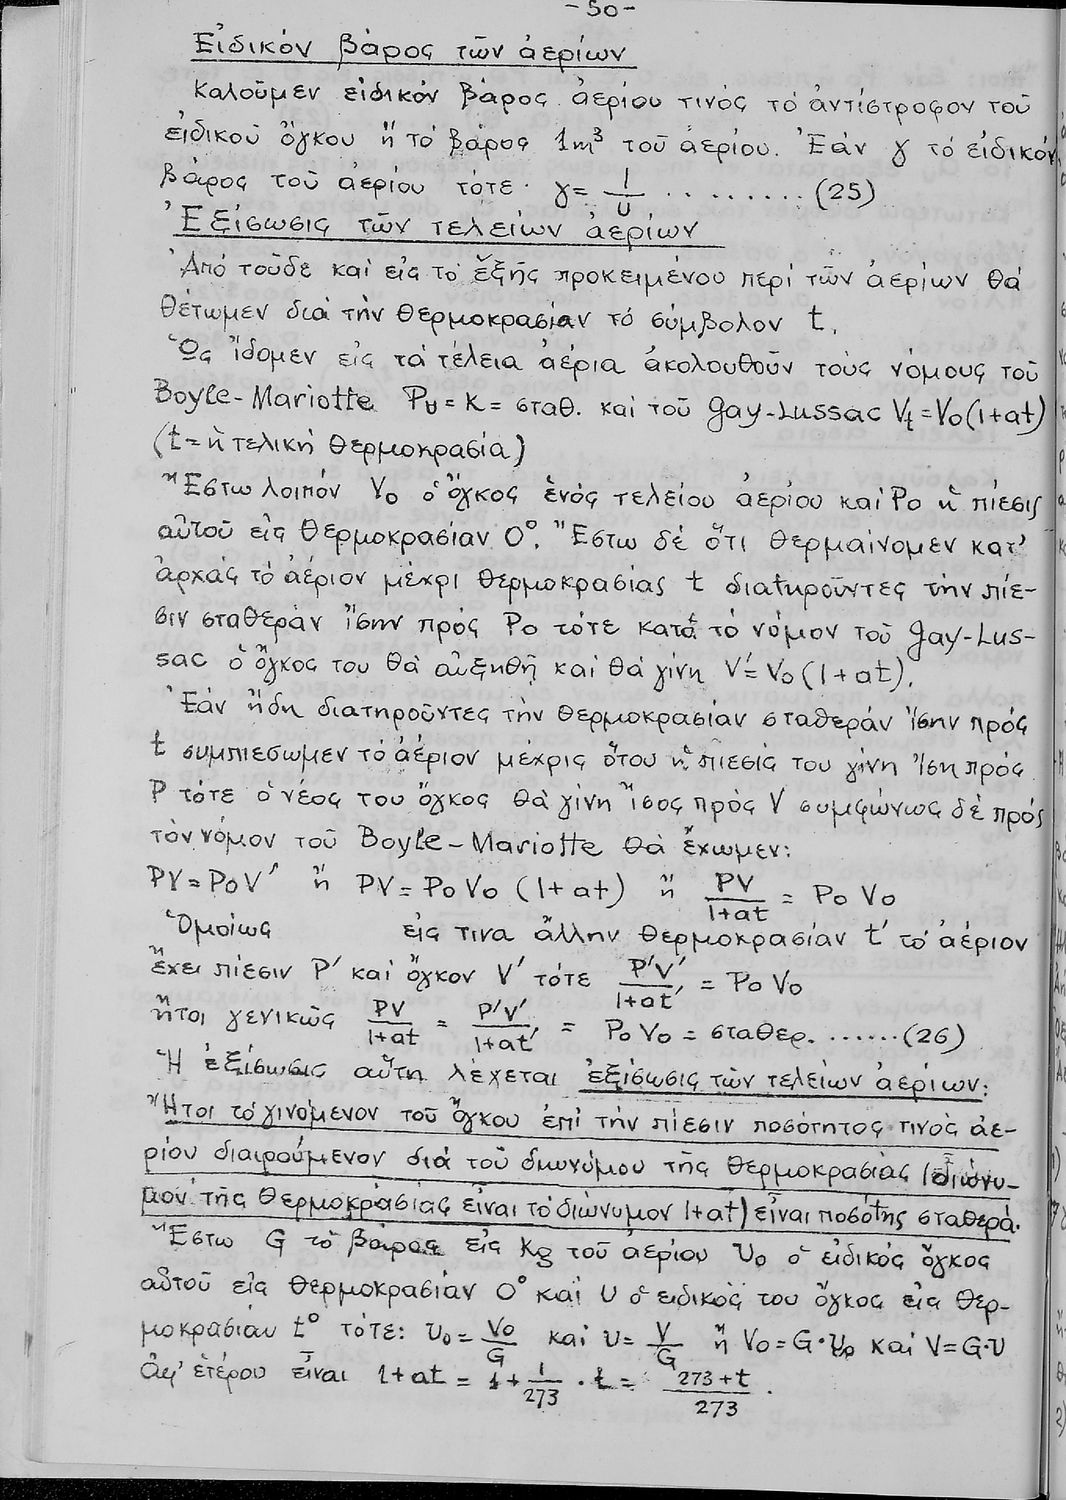 -50-
Εἰδικόν βάρος τῶν ἀερίων
Καλοῦμεν εἰδικόν βάρος ἀερίου τινός τό ἀντίστροφον τοῦ
εἰδικοῦ ὄγκου ἤ τό βάρος 1m³ τοῦ ἀερίου. Ἐάν γ τό εἰδικόν
βάρος τοῦ ἀερίου τότε γ= 1/υ ......... (25)
Ἐξίσωσις τῶν τελείων ἀερίων
Ἀπό τοῦδε καί εἰς τό ἑξῆς προκειμένου περί τῶν ἀερίων θά
θέτωμεν διά τήν θερμοκρασίαν τό σύμβολον t.
Ὡς ἴδομεν εἰς τά τέλεια ἀέρια ἀκολουθοῦν τούς νόμους τοῦ
Boyle-Mariotte Pυ = K = σταθ. καί τοῦ Gay-Lussac Vt = Vo(1+at)
(t = ἡ τελική θερμοκρασία)
Ἔστω λοιπόν Vo ὁ ὄγκος ἑνός τελείου ἀερίου καί Po ἡ πίεσις
αὐτοῦ εἰς θερμοκρασίαν 0°. Ἔστω δέ ὅτι θερμαίνομεν κατ'
ἀρχάς τό ἀέριον μέχρι θερμοκρασίας t διατηροῦντες τήν πίε-
σιν σταθεράν ἴσην πρός Po τότε κατά τό νόμον τοῦ Gay-Lus-
sac ὁ ὄγκος του θά αὐξηθῆ καί θά γίνη V' = Vo (1+at).
Ἐάν ἤδη διατηροῦντες τήν θερμοκρασίαν σταθεράν ἴσην πρός
t συμπιέσωμεν τό ἀέριον μέχρις ὅτου ἡ πίεσίς του γίνη ἴση πρός
P τότε ὁ νέος του ὄγκος θά γίνη ἴσος πρός V συμφώνως δέ πρός
τόν νόμον τοῦ Boyle-Mariotte θά ἔχωμεν:
PV = PoV' ἤ PV = Po Vo (1+at) ἤ PV/1+at = Po Vo
Ὁμοίως εἰς τινα ἄλλην θερμοκρασίαν t' τό ἀέριον
ἔχει πίεσιν P' καί ὄγκον V' τότε P'V'/1+at' = Po Vo
ἤτοι γενικῶς PV/1+at = P'V'/1+at' = Po Vo = σταθερ. ......(26)
Ἡ ἐξίσωσις αὕτη λέγεται ἐξίσωσις τῶν τελείων ἀερίων:
Ἤτοι τό γινόμενον τοῦ ὄγκου ἐπί τήν πίεσιν ποσότητος τινός ἀε-
ρίου διαιρούμενον διά τοῦ διωνύμου τῆς θερμοκρασίας (διώνυ-
μον τῆς θερμοκρασίας εἶναι τό διώνυμον 1+at) εἶναι ποσότης σταθερά.
Ἔστω G τό βάρος εἰς Kg τοῦ ἀερίου υo ὁ εἰδικός ὄγκος
αὐτοῦ εἰς θερμοκρασίαν 0° καί υ ὁ εἰδικός του ὄγκος εἰς θερ-
μοκρασίαν t° τότε: υo = Vo/G καί υ = V/G ἤ Vo = G·υo καί V = G·υ
ἀφ' ἑτέρου εἶναι 1+at = 1+ 1/273 · t = 273+t/273 .